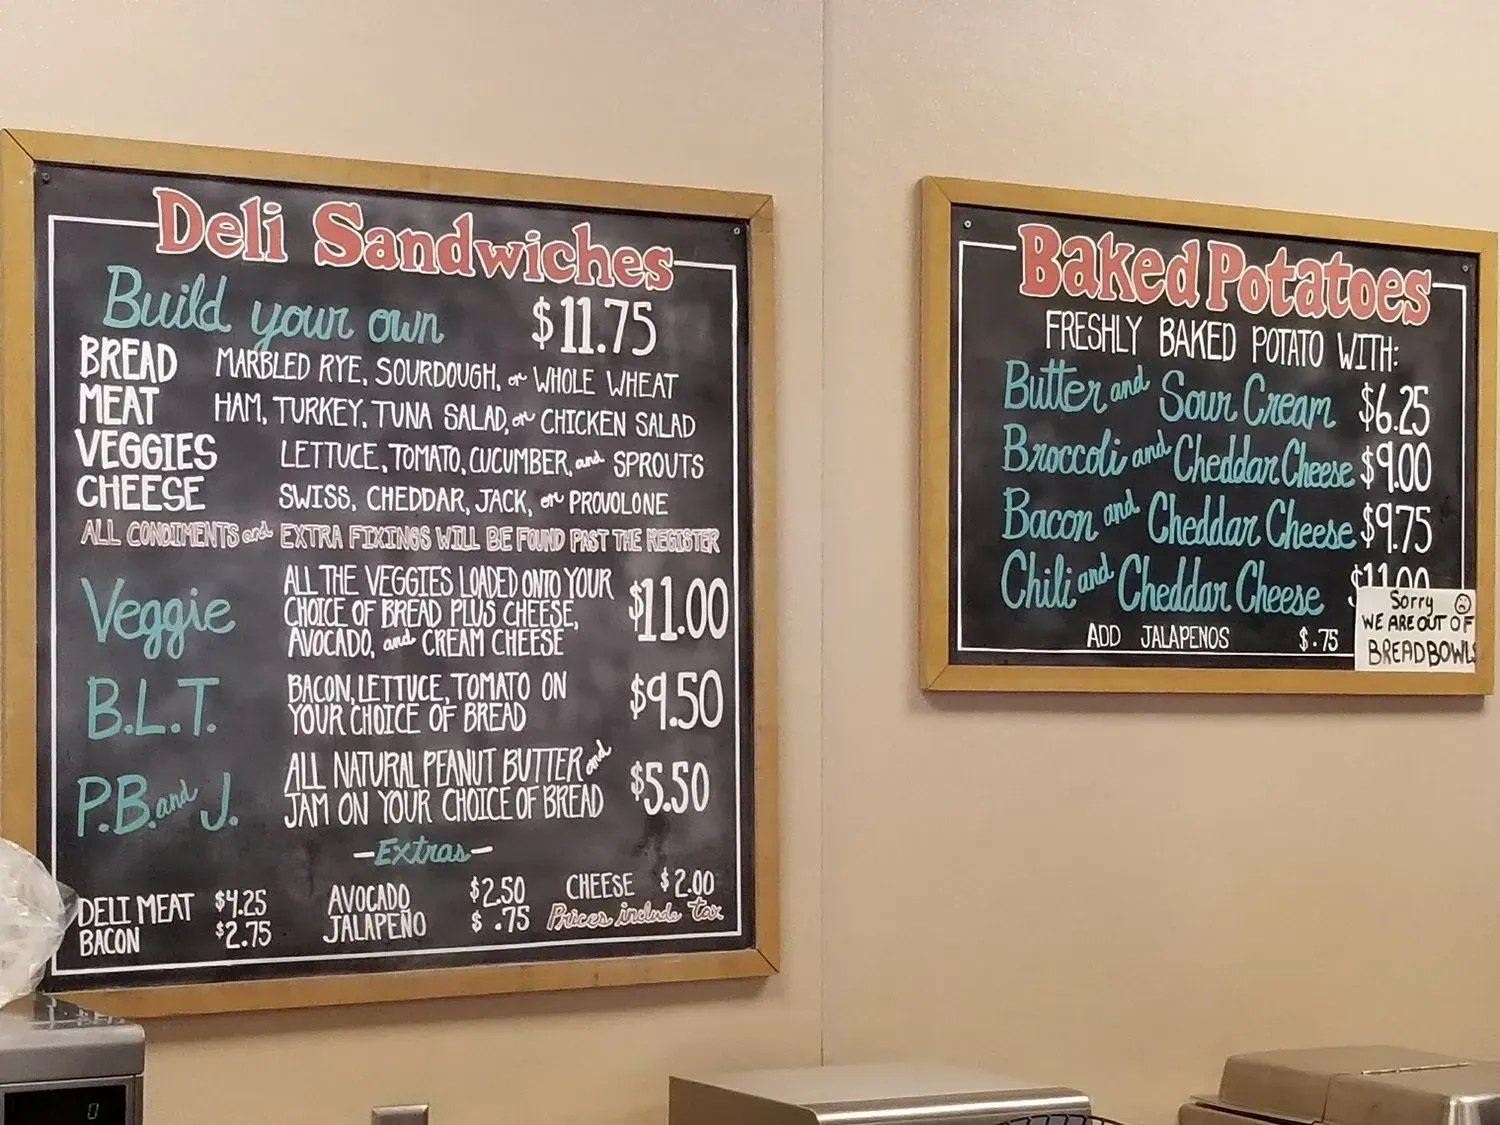 Deli Sandwiches
Build your own $11.75
BREAD MARBLED RYE, SOURDOUGH, or WHOLE WHEAT
MEAT HAM, TURKEY, TUNA SALAD, or CHICKEN SALAD
VEGGIES LETTUCE, TOMATO, CUCUMBER, and SPROUTS
CHEESE SWISS, CHEDDAR, JACK, or PROVOLONE
ALL CONDIMENTS and EXTRA FIXINGS WILL BE FOUND PAST THE REGISTER
Veggie ALL THE VEGGIES LOADED ONTO YOUR
CHOICE OF BREAD PLUS CHEESE, $11.00
AVOCADO, and CREAM CHEESE
B.L.T. BACON, LETTUCE, TOMATO ON $9.50
YOUR CHOICE OF BREAD
P.B. and J. ALL NATURAL PEANUT BUTTER and $5.50
JAM ON YOUR CHOICE OF BREAD
-Extras-
DELI MEAT $4.25 AVOCADO $2.50 CHEESE $2.00
BACON $2.75 JALAPEÑO $.75 Prices include tax
Baked Potatoes
FRESHLY BAKED POTATO WITH:
Butter and Sour Cream $6.25
Broccoli and Cheddar Cheese $9.00
Bacon and Cheddar Cheese $9.75
Chili and Cheddar Cheese $11.00
ADD JALAPENOS $.75
Sorry
WE ARE OUT OF
BREADBOWLS
0